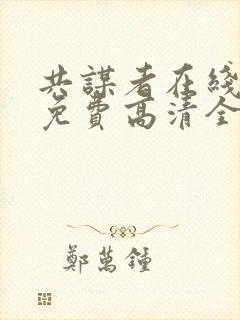 共謀者在綫
免費高清全
鄭萬鍾